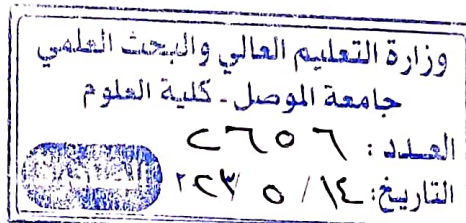 وزارة التعليم العالي والبحث العلمي
جامعة الموصل - كلية العلوم
العدد : ٢٦٥٦
التاريخ: ١٤ / ٥ / ٢٠٢٣